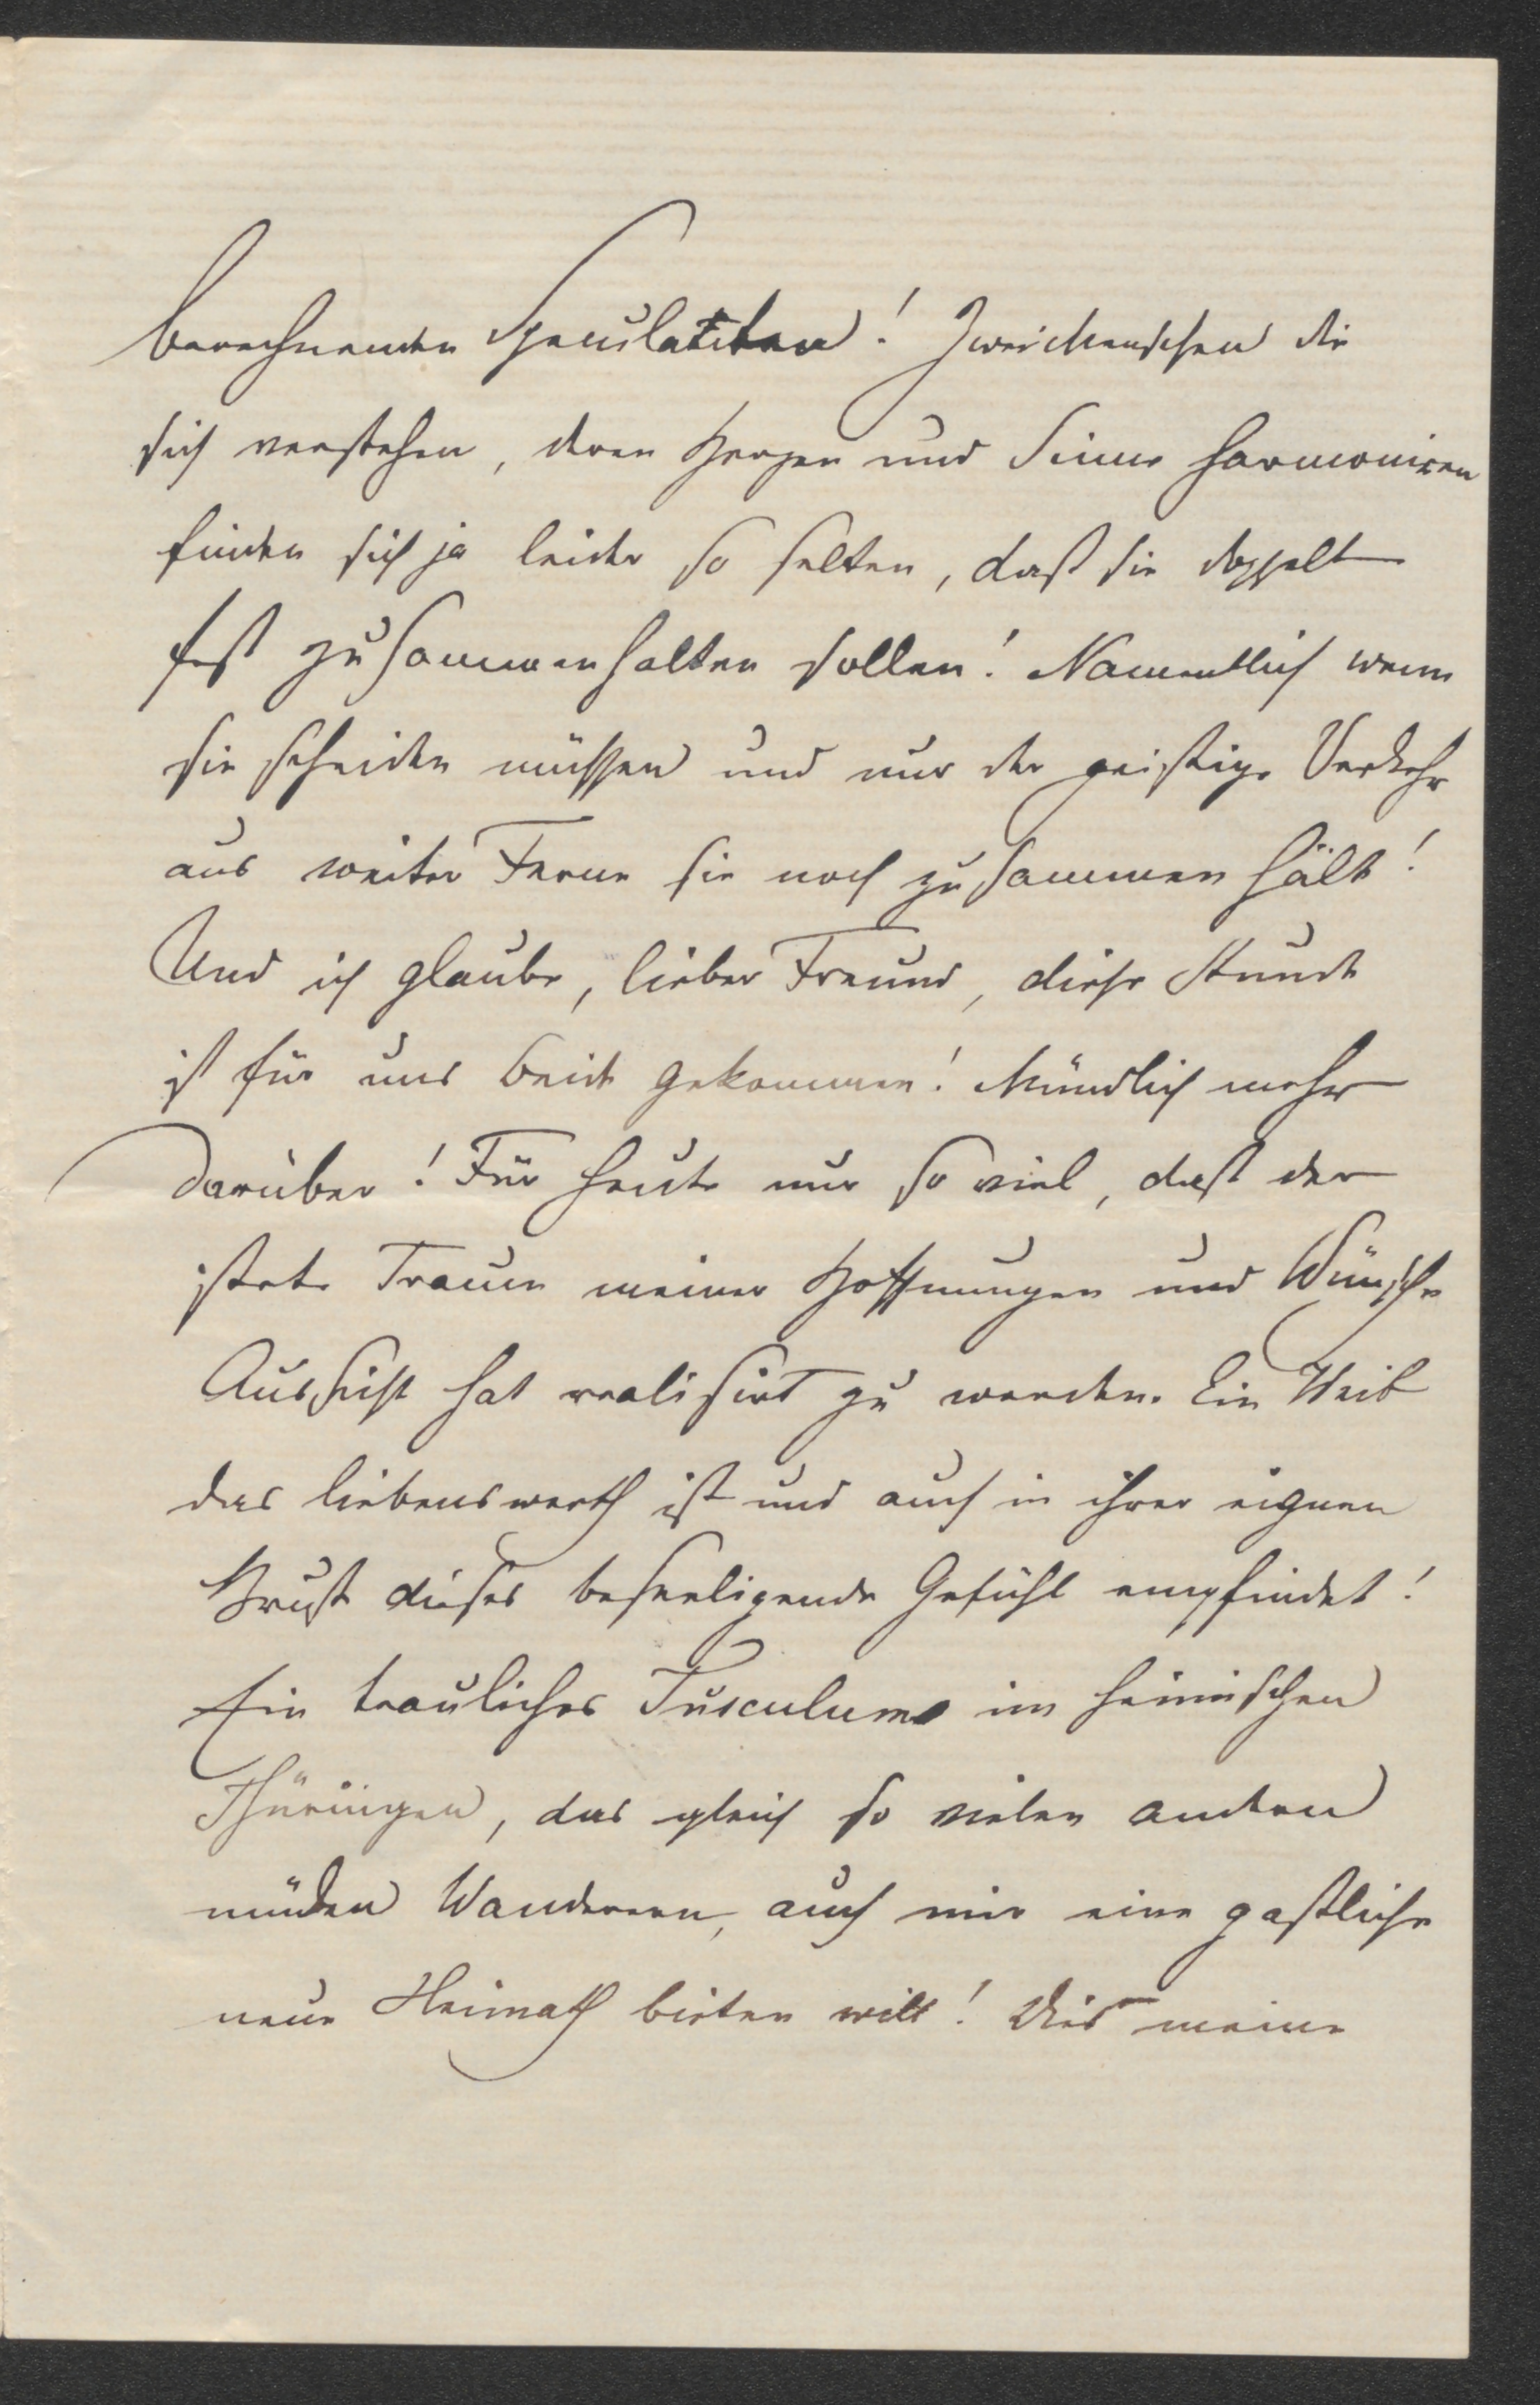 berechnenden Speculanten! Zwei Menschen die
sich verstehen, deren Herzen und Sinne harmoniren
finden sich ja leider so selten, daß sie doppelt
fest zusammenhalten sollen! Namentlich wenn
sie scheiden müssen und nur der geistige Verkehr
aus weiter Ferne sie noch zusammen hält!
Und ich glaube, lieber Freund, diese Stunde
ist für uns beide gekommen! Mündlich mehr
darüber! Für heute nur so viel, daß der
stete Traum meiner Hoffnungen und Wünsche
Aussicht hat realisirt zu werden. Ein Weib
das liebenswerth ist und auch in ihrer eignen
Brust dieses beseeligende Gefühl empfindet!
Ein trauliches Tusculum im heimischen
Thüringen, das gleich so vielen andern
müden Wanderern, auch mir eine gastliche
neue Heimath bieten will! Dies meine